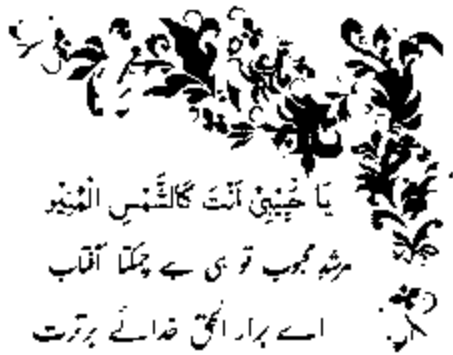 يَا حَبِيْبِيْ اَنْتَ كَالشَّمْسِ الْمُنِيْر
مرشدِ محبوب تو ہی ہے چمکتا آفتاب
اے الحق خدائے